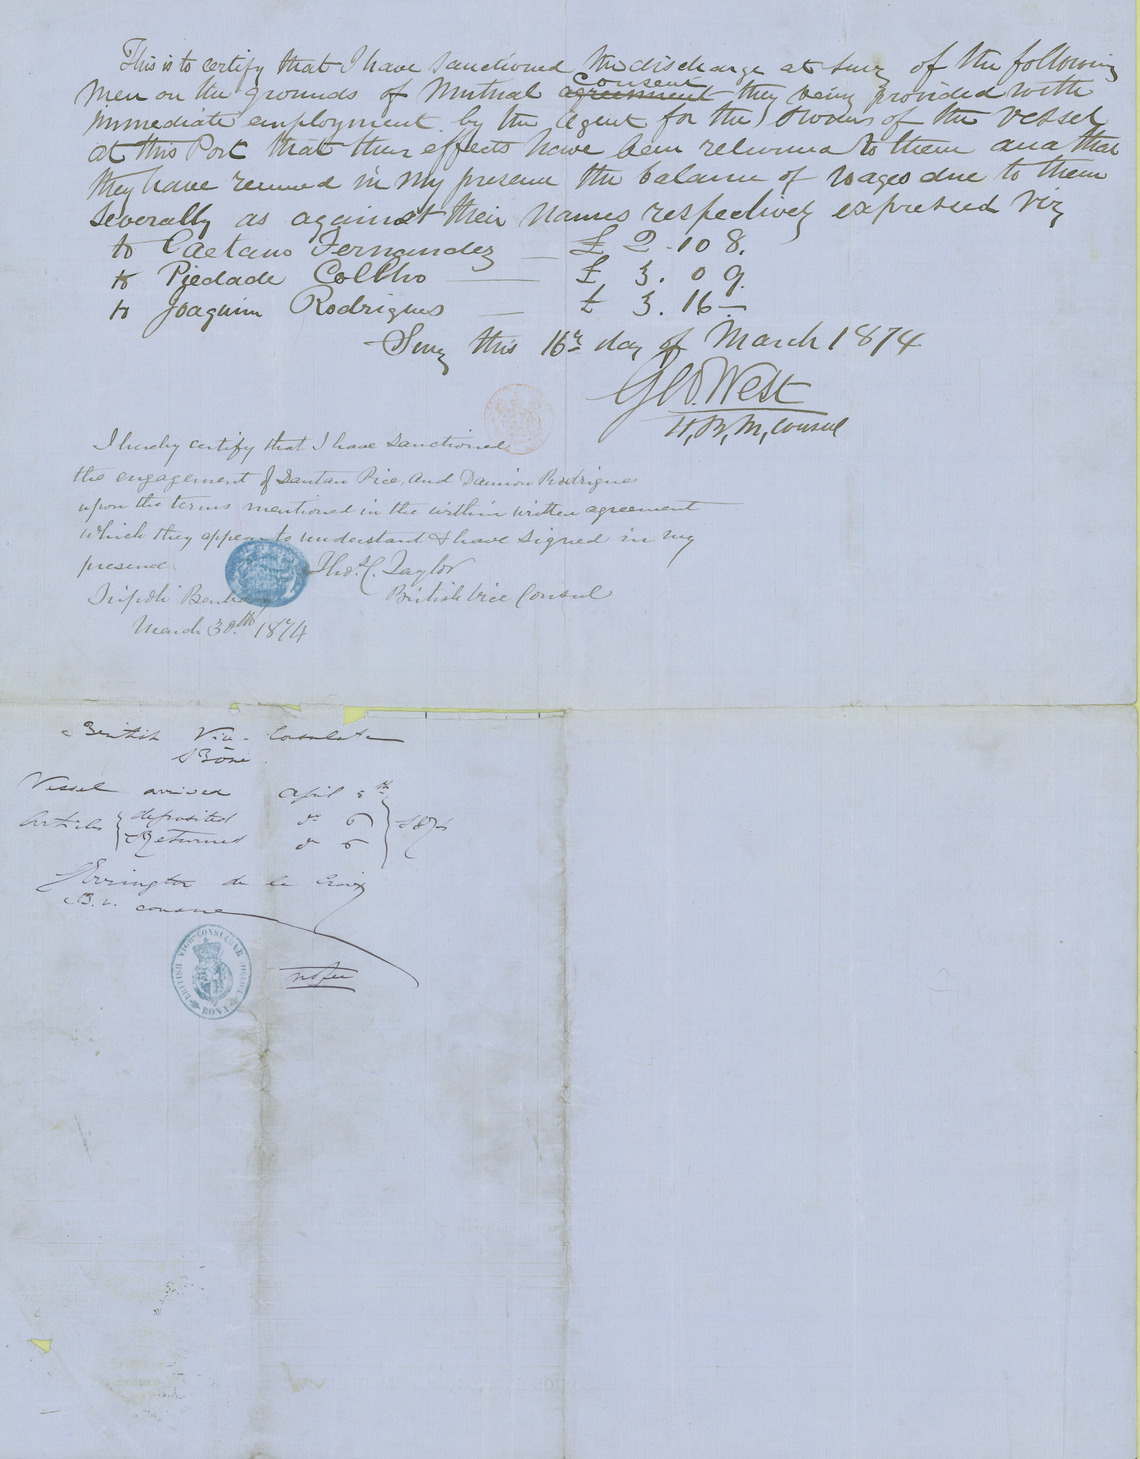 This is to certify that I have sanctioned the discharge at Suez of the following
Men on the grounds of Mutual agreement consent they being provided with
immediate employment by the Agent for the Owners of the Vessel
at this Port that their effects have been returned to them and that
they have received in my presence the balance of wages due to them
severally as against their names respectively expressed viz
to Caetano Fernandez — £ 2. 10 8.
to Piedade Collho — £ 3. 0 9.
to Joaquim Rodrigues — £ 3. 16 —
Suez this 16th day of March 1874
Geo. West
H, B, M, Consul
I hereby certify that I have sanctioned
the engagement of Santan Pice, and Damion Rodrigue
upon the terms mentioned in the within written agreement
which they appear to understand & have signed in my
presence
Thos. C. Taylor
Tripoli
British Vice Consul
March 30th 1874
British Vice-Consulate
Bône
Vessel arrived April 5th
Articles deposited do 6
Returned do 6
1874
Errington de la Croix
B. V. Consul
BRITISH VICE-CONSULAR
BONA